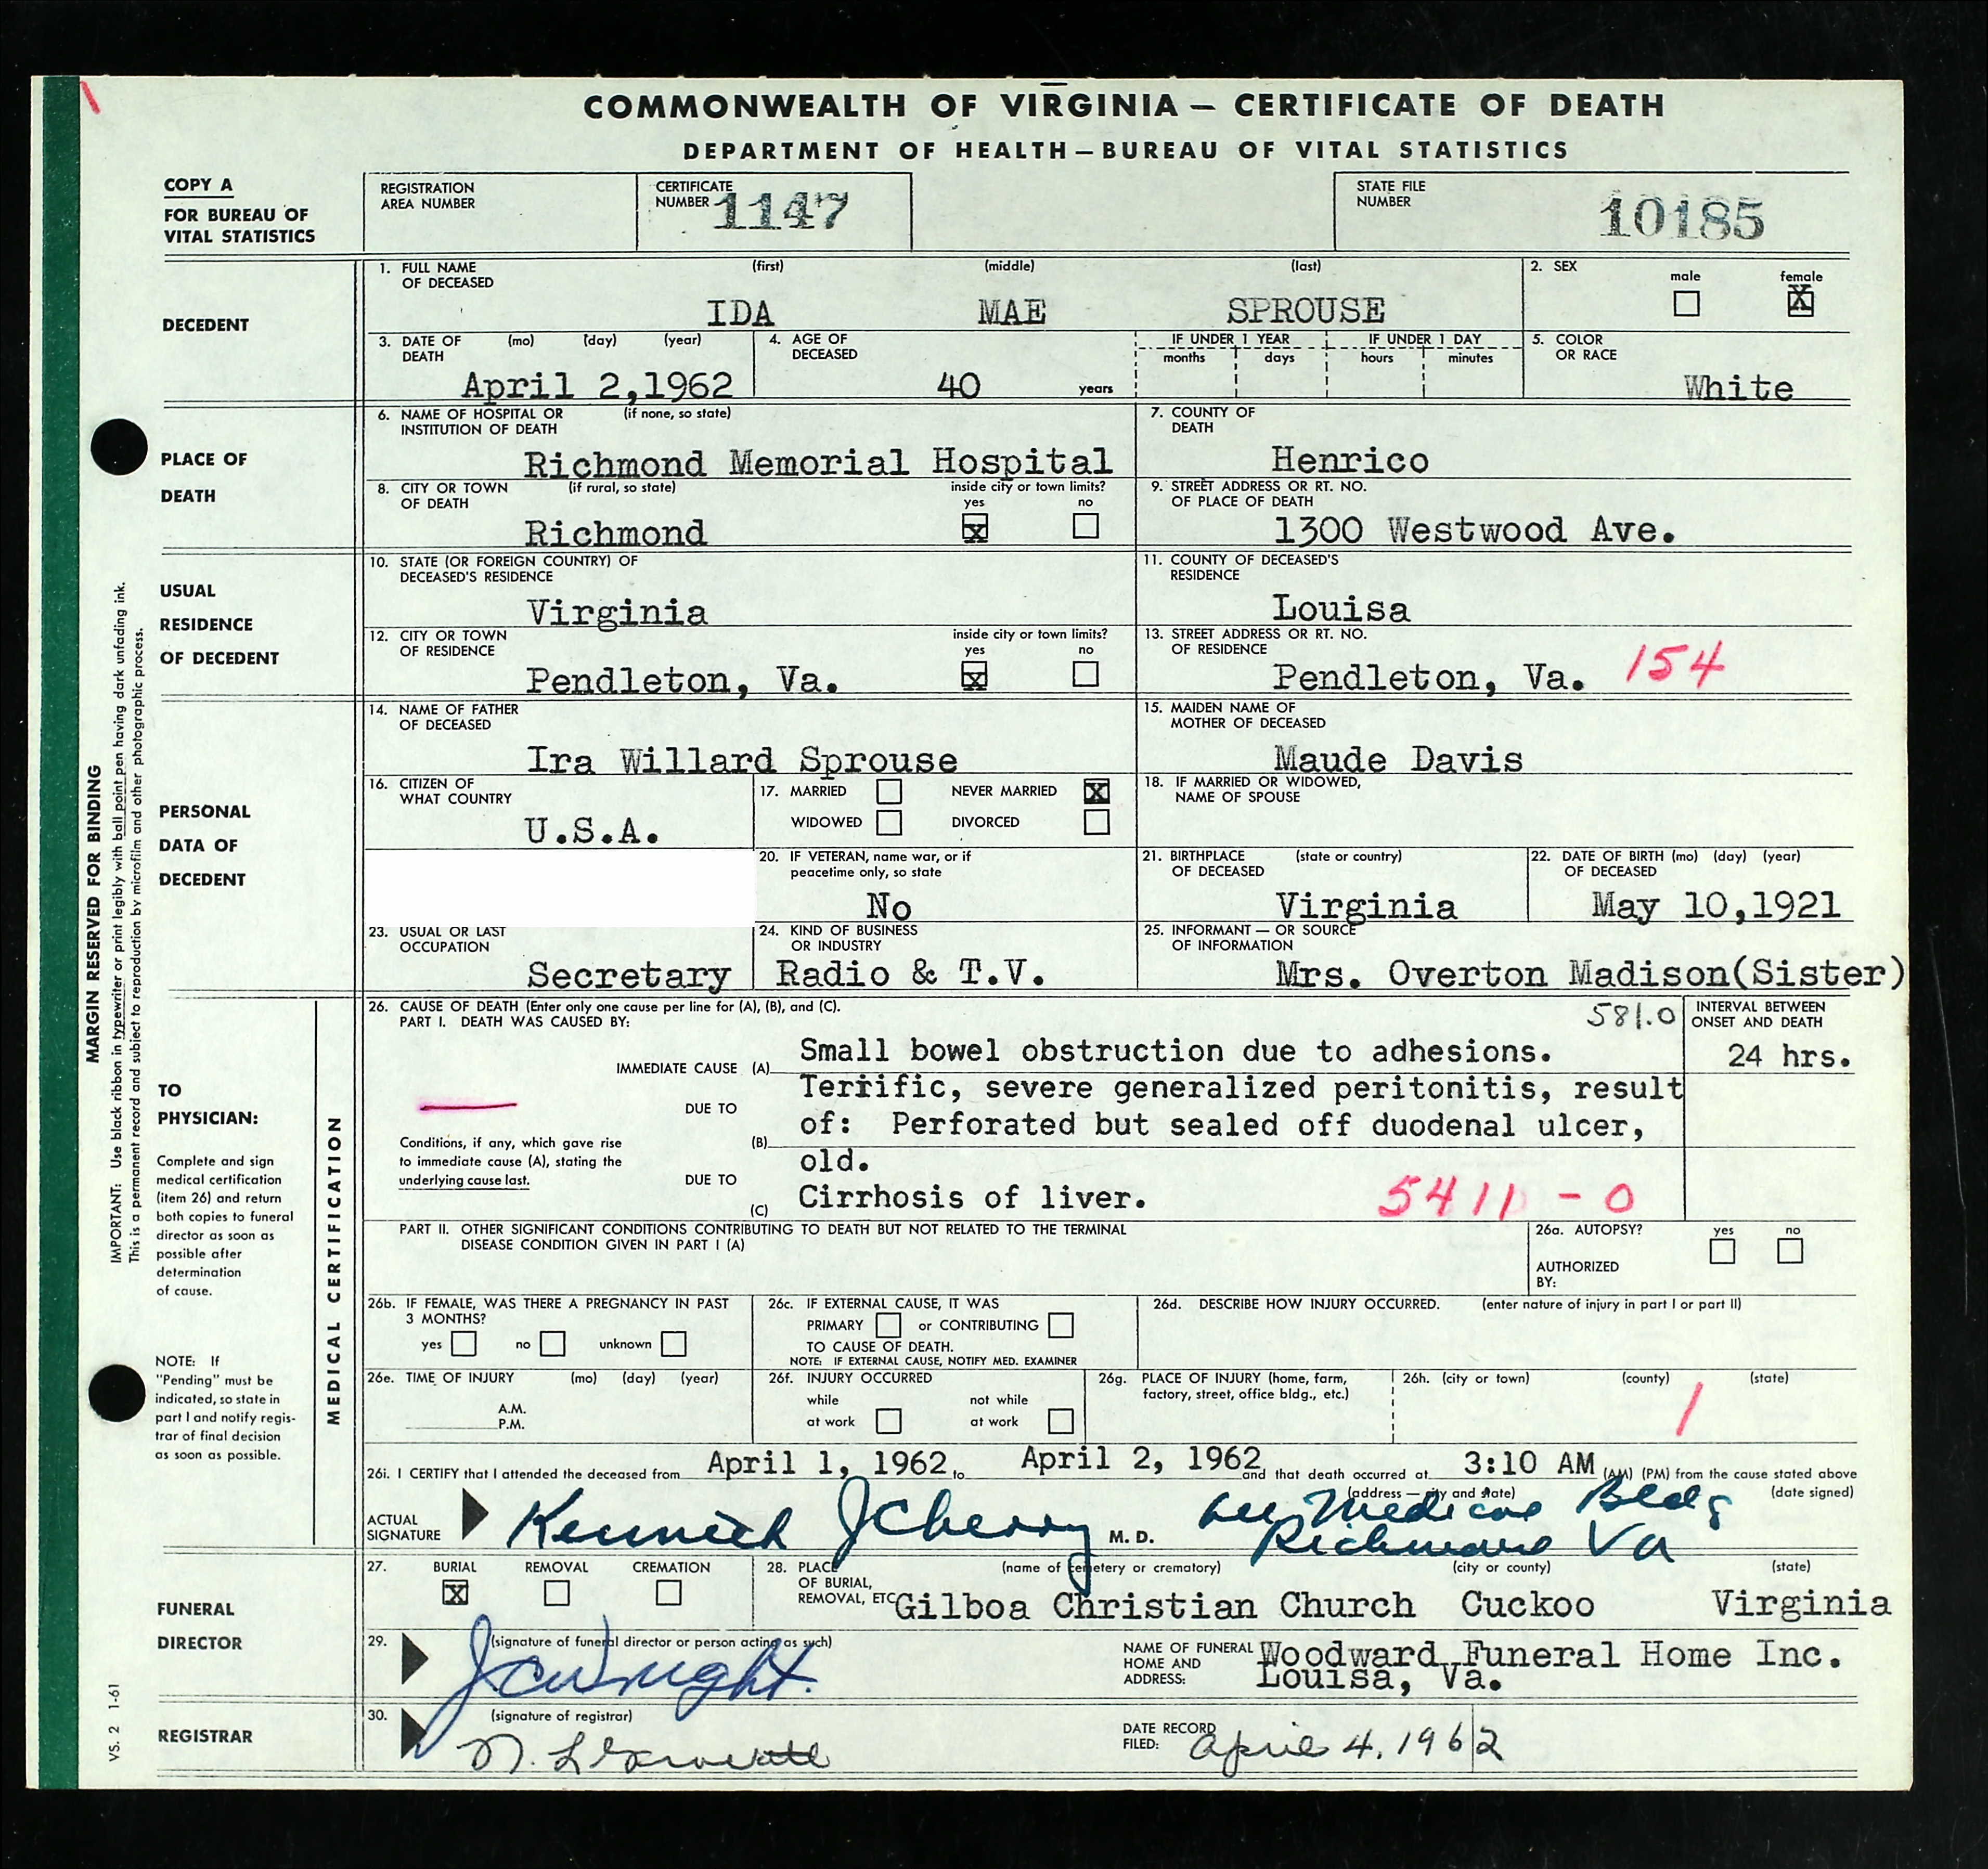 COMMONWEALTH OF VIRGINIA — CERTIFICATE OF DEATH
DEPARTMENT OF HEALTH — BUREAU OF VITAL STATISTICS
COPY A
FOR BUREAU OF
VITAL STATISTICS
REGISTRATION
AREA NUMBER
CERTIFICATE
NUMBER 1147
STATE FILE
NUMBER
10185
DECEDENT
1. FULL NAME OF DECEASED (first) (middle) (last)
IDA MAE SPROUSE
2. SEX
male female
X
3. DATE OF DEATH (mo) (day) (year)
April 2,1962
4. AGE OF DECEASED
40 years
IF UNDER 1 YEAR
months days
IF UNDER 1 DAY
hours minutes
5. COLOR OR RACE
White
PLACE OF
DEATH
6. NAME OF HOSPITAL OR INSTITUTION OF DEATH (if none, so state)
Richmond Memorial Hospital
7. COUNTY OF DEATH
Henrico
8. CITY OR TOWN OF DEATH (if rural, so state)
Richmond
inside city or town limits?
yes no
X
9. STREET ADDRESS OR RT. NO. OF PLACE OF DEATH
1300 Westwood Ave.
USUAL
RESIDENCE
OF DECEDENT
10. STATE (OR FOREIGN COUNTRY) OF DECEASED'S RESIDENCE
Virginia
11. COUNTY OF DECEASED'S RESIDENCE
Louisa
12. CITY OR TOWN OF RESIDENCE
Pendleton, Va.
inside city or town limits?
yes no
X
13. STREET ADDRESS OR RT. NO. OF RESIDENCE
Pendleton, Va. 154
PERSONAL
DATA OF
DECEDENT
14. NAME OF FATHER OF DECEASED
Ira Willard Sprouse
15. MAIDEN NAME OF MOTHER OF DECEASED
Maude Davis
16. CITIZEN OF WHAT COUNTRY
U.S.A.
17. MARRIED NEVER MARRIED X
WIDOWED DIVORCED
18. IF MARRIED OR WIDOWED, NAME OF SPOUSE
20. IF VETERAN, name war, or if peacetime only, so state
No
21. BIRTHPLACE OF DECEASED (state or country)
Virginia
22. DATE OF BIRTH OF DECEASED (mo) (day) (year)
May 10,1921
23. USUAL OR LAST OCCUPATION
Secretary
24. KIND OF BUSINESS OR INDUSTRY
Radio & T.V.
25. INFORMANT — OR SOURCE OF INFORMATION
Mrs. Overton Madison(Sister)
TO
PHYSICIAN:
Complete and sign
medical certification
(item 26) and return
both copies to funeral
director as soon as
possible after
determination
of cause.
NOTE: If
"Pending" must be
indicated, so state in
part I and notify regis-
trar of final decision
as soon as possible.
MEDICAL CERTIFICATION
26. CAUSE OF DEATH (Enter only one cause per line for (A), (B), and (C).
PART I. DEATH WAS CAUSED BY:
581.0
INTERVAL BETWEEN
ONSET AND DEATH
24 hrs.
IMMEDIATE CAUSE (A) Small bowel obstruction due to adhesions.
Terrific, severe generalized peritonitis, result
DUE TO
(B) of: Perforated but sealed off duodenal ulcer,
old.
Conditions, if any, which gave rise
to immediate cause (A), stating the
underlying cause last.
DUE TO
(C) Cirrhosis of liver.
5411 - 0
PART II. OTHER SIGNIFICANT CONDITIONS CONTRIBUTING TO DEATH BUT NOT RELATED TO THE TERMINAL
DISEASE CONDITION GIVEN IN PART I (A)
26a. AUTOPSY? yes no
AUTHORIZED
BY:
26b. IF FEMALE, WAS THERE A PREGNANCY IN PAST
3 MONTHS?
yes no unknown
26c. IF EXTERNAL CAUSE, IT WAS
PRIMARY or CONTRIBUTING
TO CAUSE OF DEATH.
NOTE: IF EXTERNAL CAUSE, NOTIFY MED. EXAMINER
26d. DESCRIBE HOW INJURY OCCURRED. (enter nature of injury in part I or part II)
26e. TIME OF INJURY (mo) (day) (year)
A.M.
P.M.
26f. INJURY OCCURRED
while not while
at work at work
26g. PLACE OF INJURY (home, farm,
factory, street, office bldg., etc.)
26h. (city or town) (county) (state)
1
26i. I CERTIFY that I attended the deceased from April 1, 1962, to April 2, 1962 and that death occurred at 3:10 AM (AM) (PM) from the cause stated above
(address — city and state) (date signed)
ACTUAL
SIGNATURE
Kenneth J Cherry M. D.
Lee Medical Bldg
Richmond Va
FUNERAL
DIRECTOR
27. BURIAL REMOVAL CREMATION
X
28. PLACE OF BURIAL, REMOVAL, ETC. (name of cemetery or crematory) (city or county) (state)
Gilboa Christian Church Cuckoo Virginia
29. (signature of funeral director or person acting as such)
J C Wright.
NAME OF FUNERAL
HOME AND
ADDRESS:
Woodward Funeral Home Inc.
Louisa, Va.
REGISTRAR
30. (signature of registrar)
DATE RECORD
FILED:
April 4, 1962
MARGIN RESERVED FOR BINDING
IMPORTANT: Use black ribbon in typewriter or print legibly with ball point pen having dark unfading ink.
This is a permanent record and subject to reproduction by microfilm and other photographic process.
VS. 2 1-61